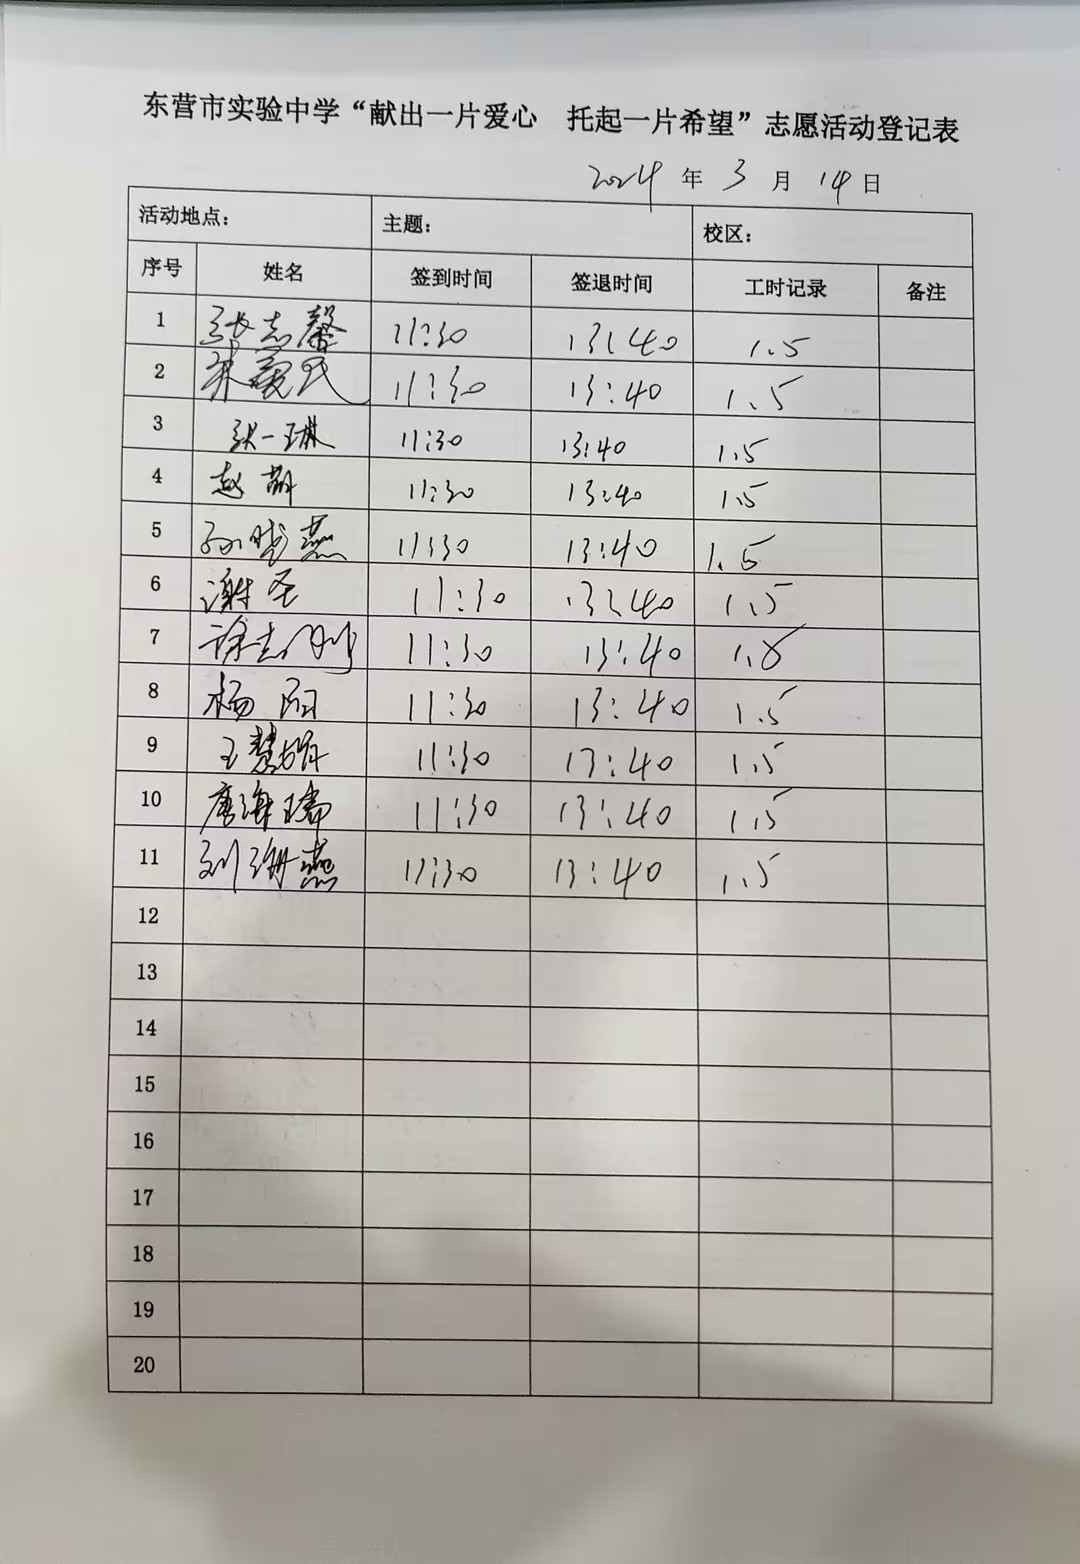 东营市实验中学“献出一片爱心 托起一片希望”志愿活动登记表
2024 年 3 月 14 日
活动地点： 主题： 校区：
序号 姓名 签到时间 签退时间 工时记录 备注
1 张志馨 11:30 13:40 1.5
2 11:30 13:40 1.5
3 张一琳 11:30 13:40 1.5
4 赵 11:30 13:40 1.5
5 孙晓燕 11:30 13:40 1.5
6 谢圣 11:30 13:40 1.5
7 徐志刚 11:30 13:40 1.5
8 杨阳 11:30 13:40 1.5
9 王慧娟 11:30 13:40 1.5
10 唐海瑞 11:30 13:40 1.5
11 刘海燕 11:30 13:40 1.5
12
13
14
15
16
17
18
19
20